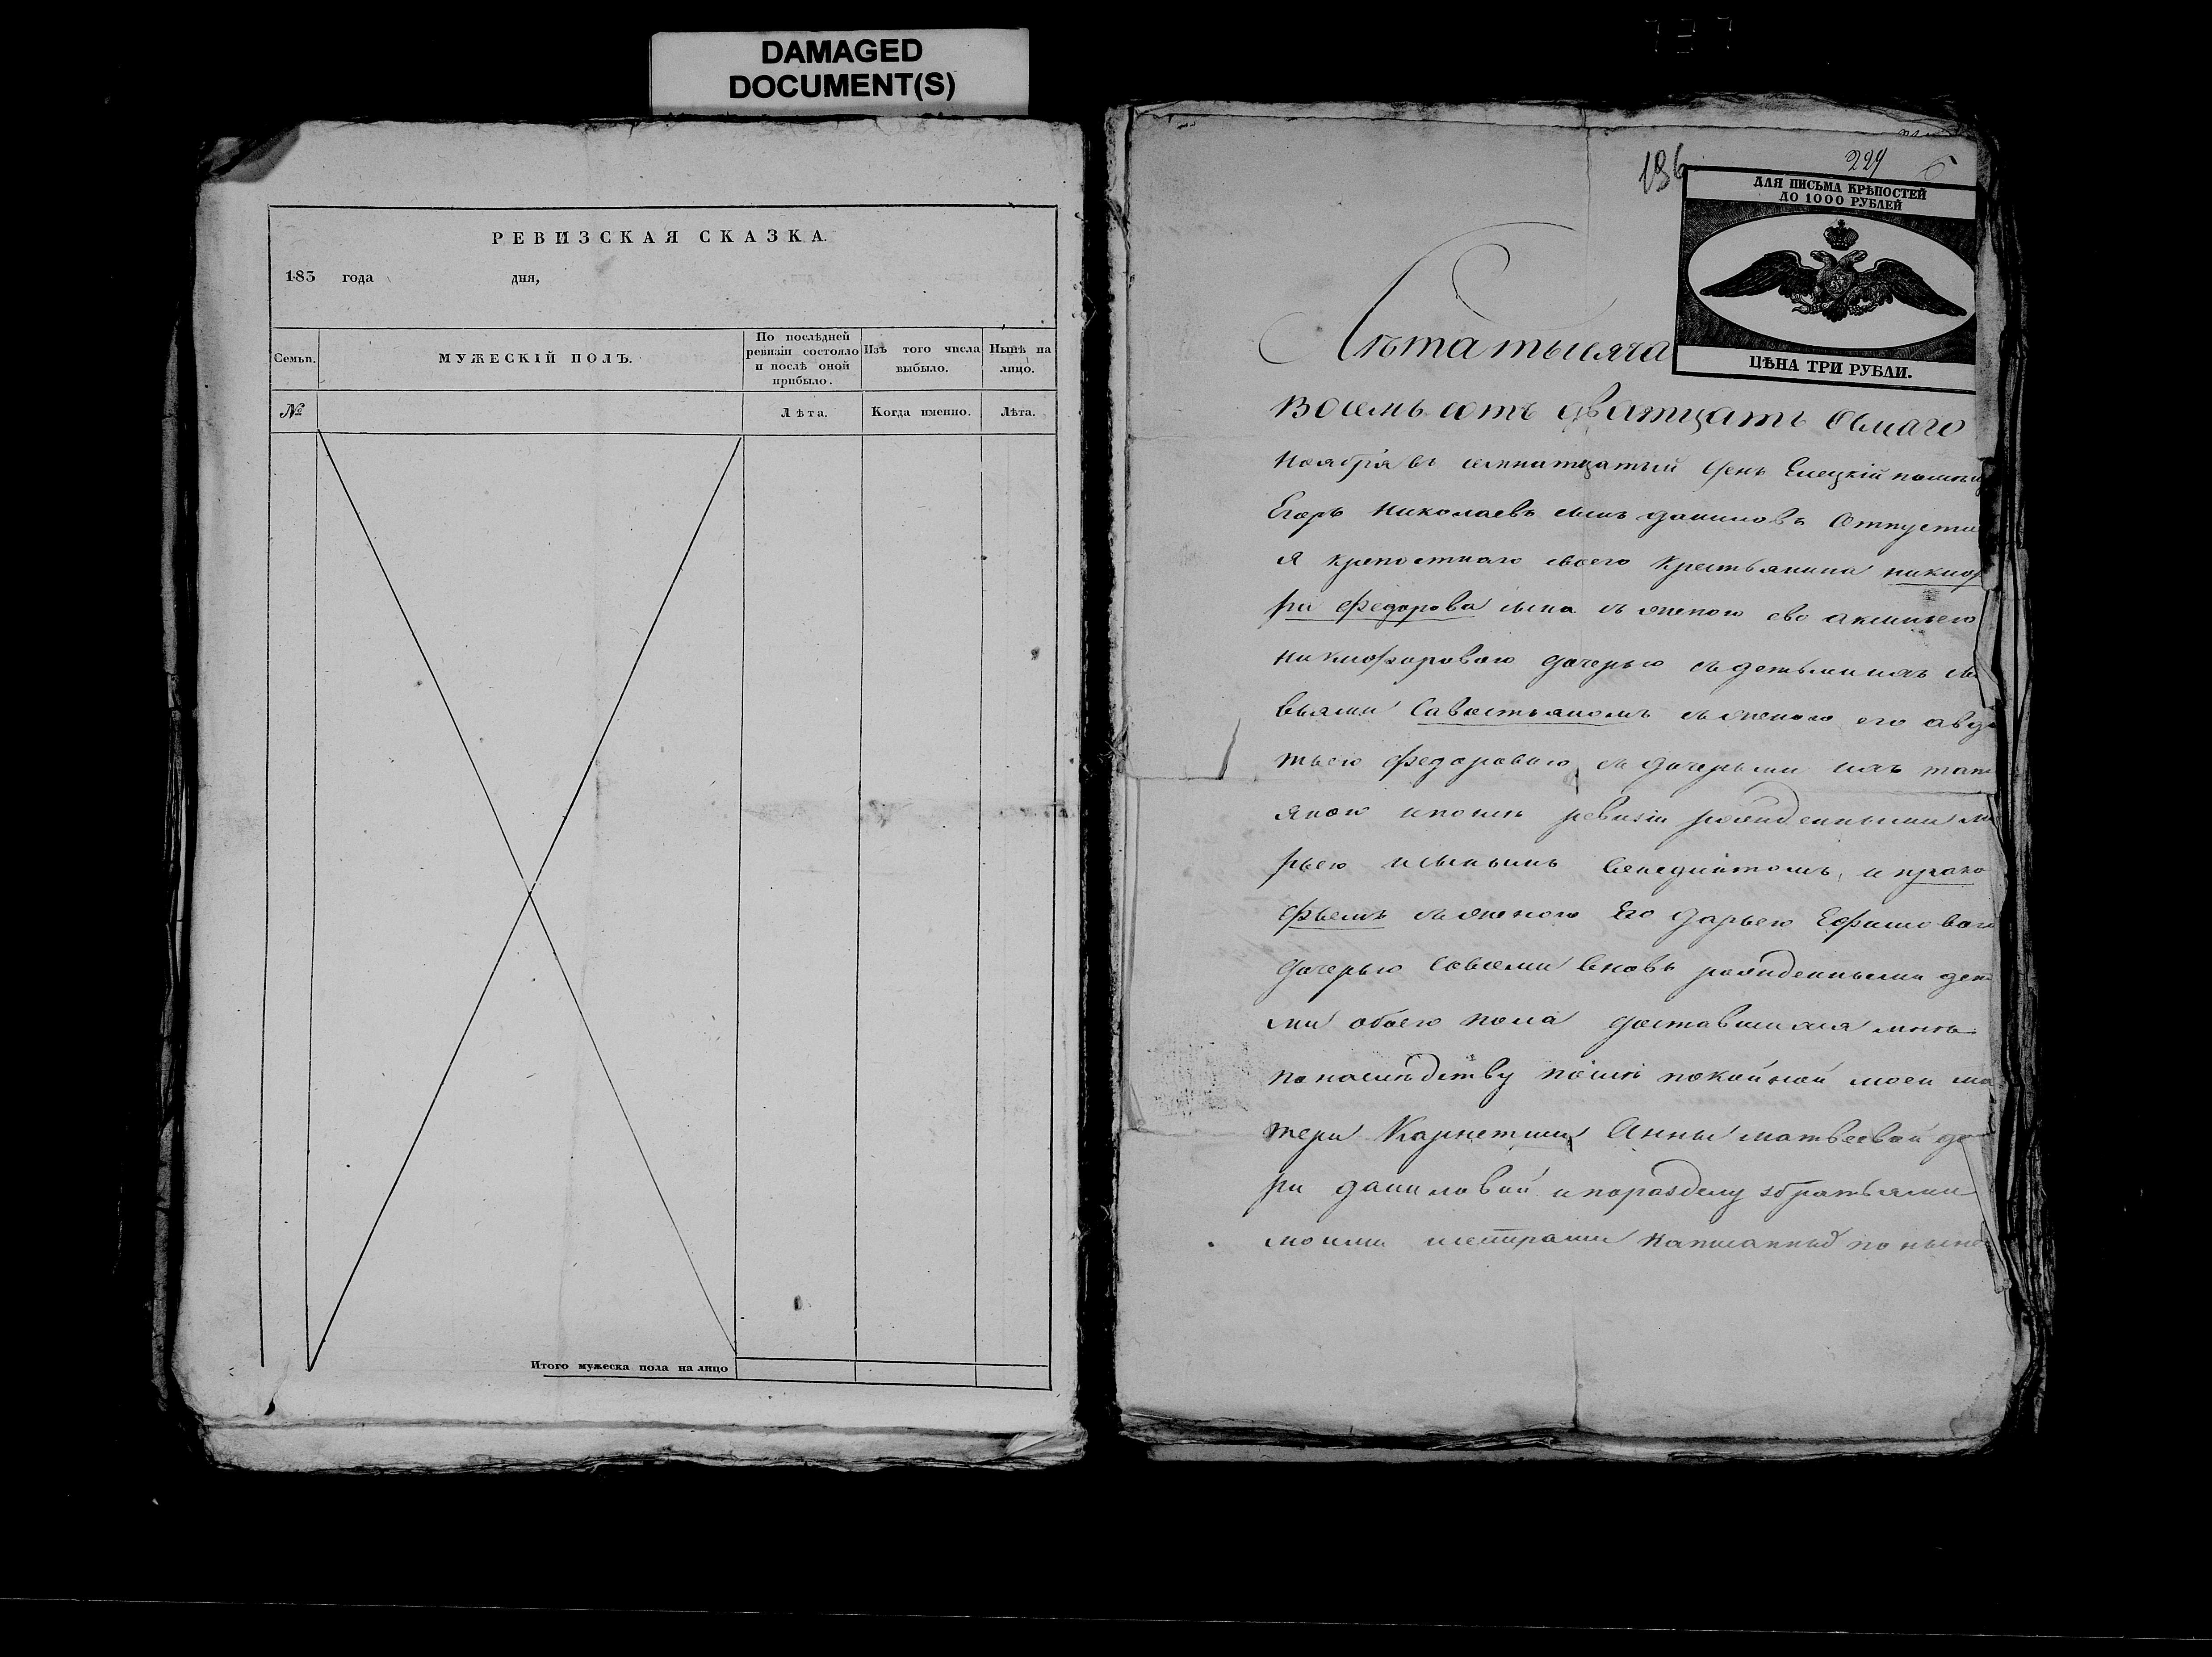 DAMAGED
DOCUMENT(S)
РЕВИЗСКАЯ СКАЗКА.
183 года дня,
Семьи.
МУЖЕСКІЙ ПОЛЪ.
По послѣдней ревизіи состояло и послѣ оной прибыло.
Изъ того числа выбыло.
Нынѣ на лицо.
№
Лѣта.
Когда именно.
Лѣта.
Итого мужеска пола на лицо
196
229
ДЛЯ ПИСЬМА КРѢПОСТЕЙ
ДО 1000 РУБЛЕЙ
ЦѢНА ТРИ РУБЛИ.
Лѣта тысяча
восемь сотъ дватцать осмаго
Ноября въ семнатцатый день Елецкій помѣщ
Егоръ Николаевъ сынъ даниловъ Отпусти
я крепостнаго своего крестьянина никиоф
ра федорова сына съ женою ево аксиньею
никиофоровою дочерью съ детьми ихъ сы
вьями Савостьяномъ съ женою его авдо
тьею федоровою, съ дочерьми ихъ тать
яною и после ревизіи рожденными ма
рьею и сыномъ венедиктомъ, и проко
фьемъ съ женою Его дарьею Ефимовою
дочерью совсеми вновь рожденными дет
ми обоего пола доставшихся мнѣ
по наследству после покойной моей ма
тери Карнетши Анны матвеевой до
ри даниловой и поразделу збратьями
моими и сестрами написанныхъ по ныне